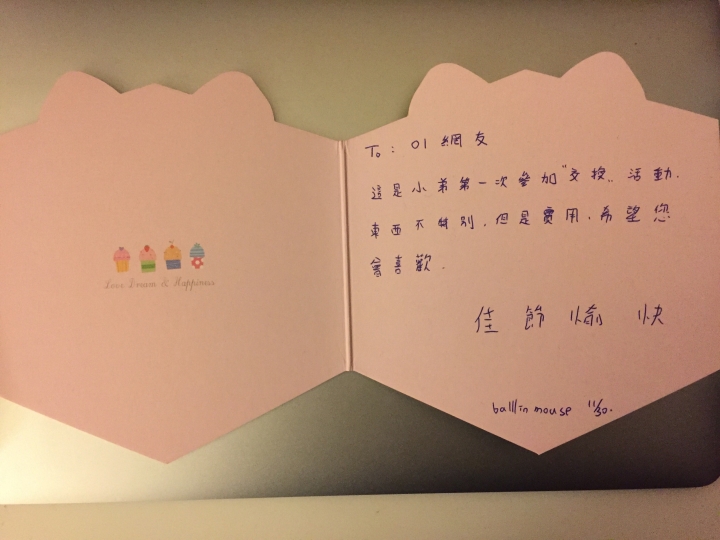 Love Dream & Happiness
To: 01 網友
這是小弟第一次參加"交換"活動.
東西不特別.但是實用.希望您
會喜歡.
佳節愉快
ballin mouse 11/30.